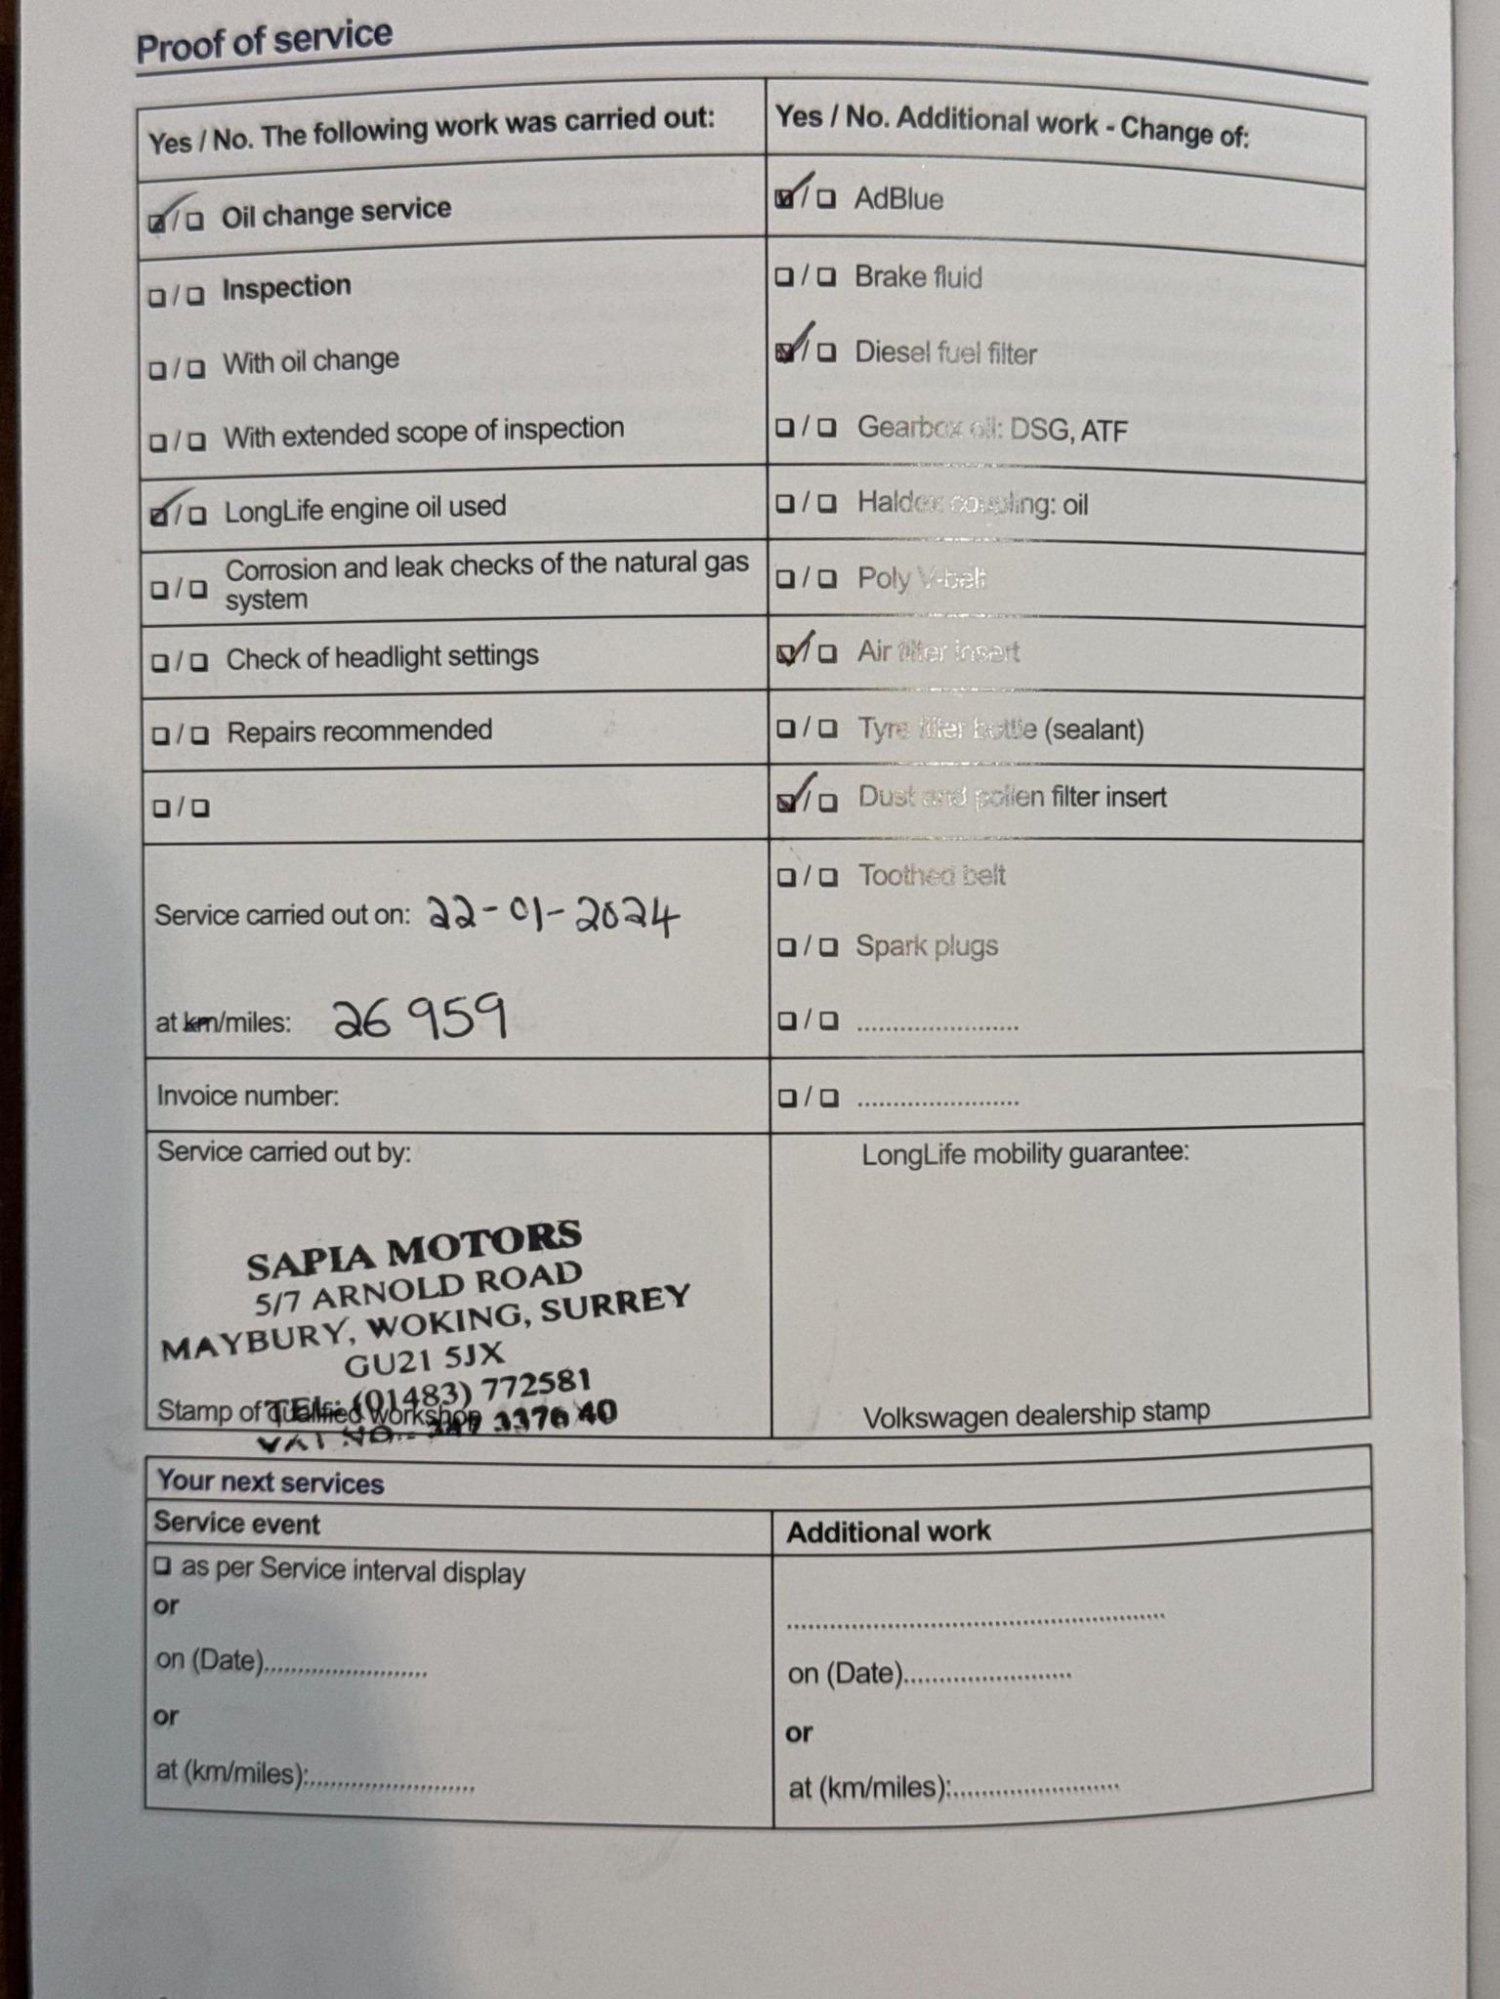 Proof of service
Yes / No. The following work was carried out:
☑/❑ Oil change service
❑/❑ Inspection
❑/❑ With oil change
❑/❑ With extended scope of inspection
☑/❑ LongLife engine oil used
❑/❑ Corrosion and leak checks of the natural gas
system
❑/❑ Check of headlight settings
❑/❑ Repairs recommended
❑/❑
Service carried out on: 22-01-2024
at km/miles: 26 959
Invoice number:
Service carried out by:
SAPIA MOTORS
5/7 ARNOLD ROAD
MAYBURY, WOKING, SURREY
GU21 5JX
TEL: (01483) 772581
Stamp of qualified workshop
VAT NO.-
Yes / No. Additional work - Change of:
☑/❑ AdBlue
❑/❑ Brake fluid
☑/❑ Diesel fuel filter
❑/❑ Gearbox oil: DSG, ATF
❑/❑ Haldex coupling: oil
❑/❑ Poly V-belt
☑/❑ Air filter insert
❑/❑ Tyre filler bottle (sealant)
☑/❑ Dust and pollen filter insert
❑/❑ Toothed belt
❑/❑ Spark plugs
❑/❑ .......................
❑/❑ .......................
LongLife mobility guarantee:
Volkswagen dealership stamp
Your next services
Service event
❑ as per Service interval display
or
on (Date)........................
or
at (km/miles):........................
Additional work
......................................................
on (Date)........................
or
at (km/miles):........................